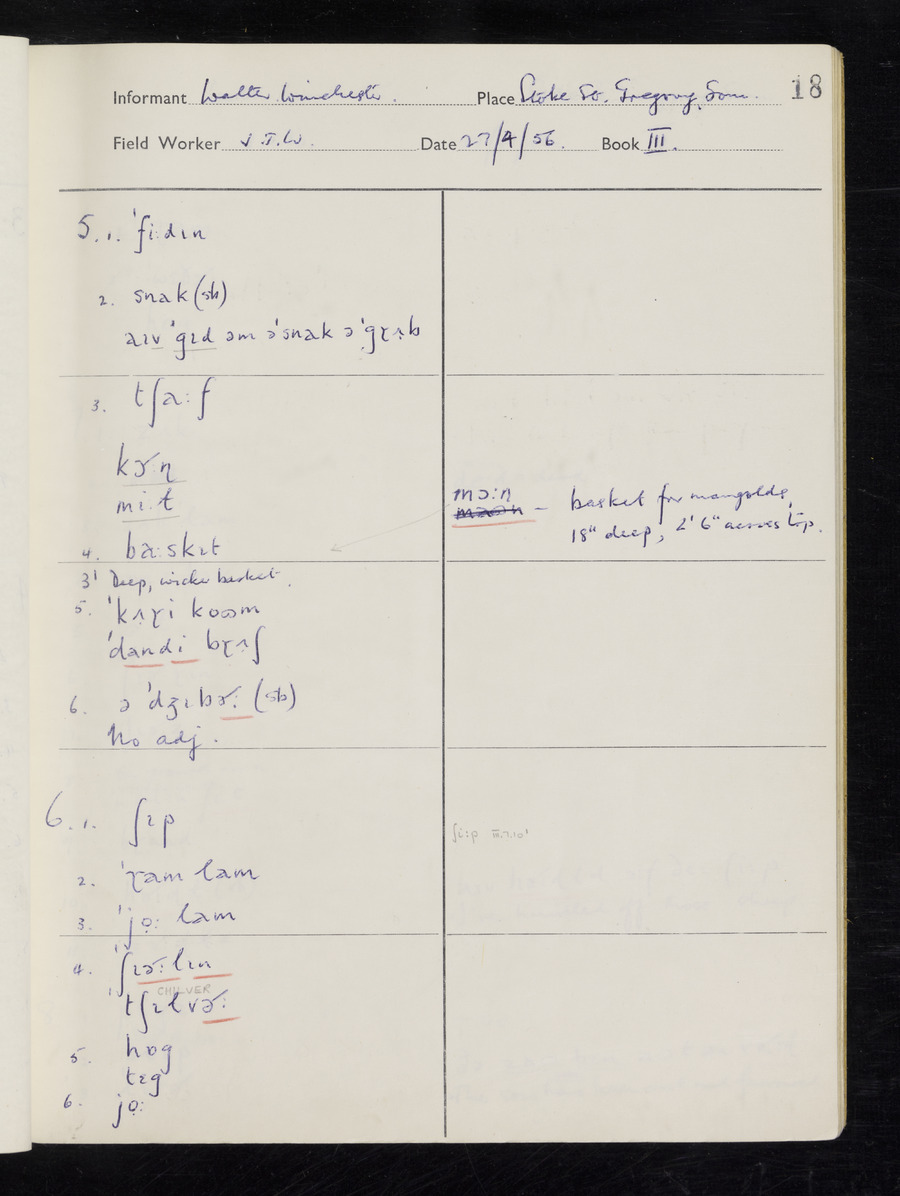 18
Informant Walter Winchester. Place Stoke St. Gregory, Som.
Field Worker J.T.W. Date 27/4/56. Book III.
5.1. ˈfiːdɪn
2. snak (sb)
aɪv ˈgɪd əm əˈsnak ə ˈgɤʌb
3. tʃaːf
kɚɳ
miːt
mɔːɳ
basket for mangolds,
18" deep, 2' 6" across top.
4. baːskɪt
3' Deep, wicker basket.
5. ˈkʌɤi koʊm
ˈdandi bɤʌʃ
6. ə ˈdʒɪbɚː (sb)
No adj.
6.1. ʃɪp
ʃiːp III.7.10'
2. ˈɤam lam
3. ˈjo̤ː lam
4. ˈʃɪɚːlɪn
CHILVER
ˈtʃɪlvɚː
5. hɒg
tɛg
6. jo̤ː